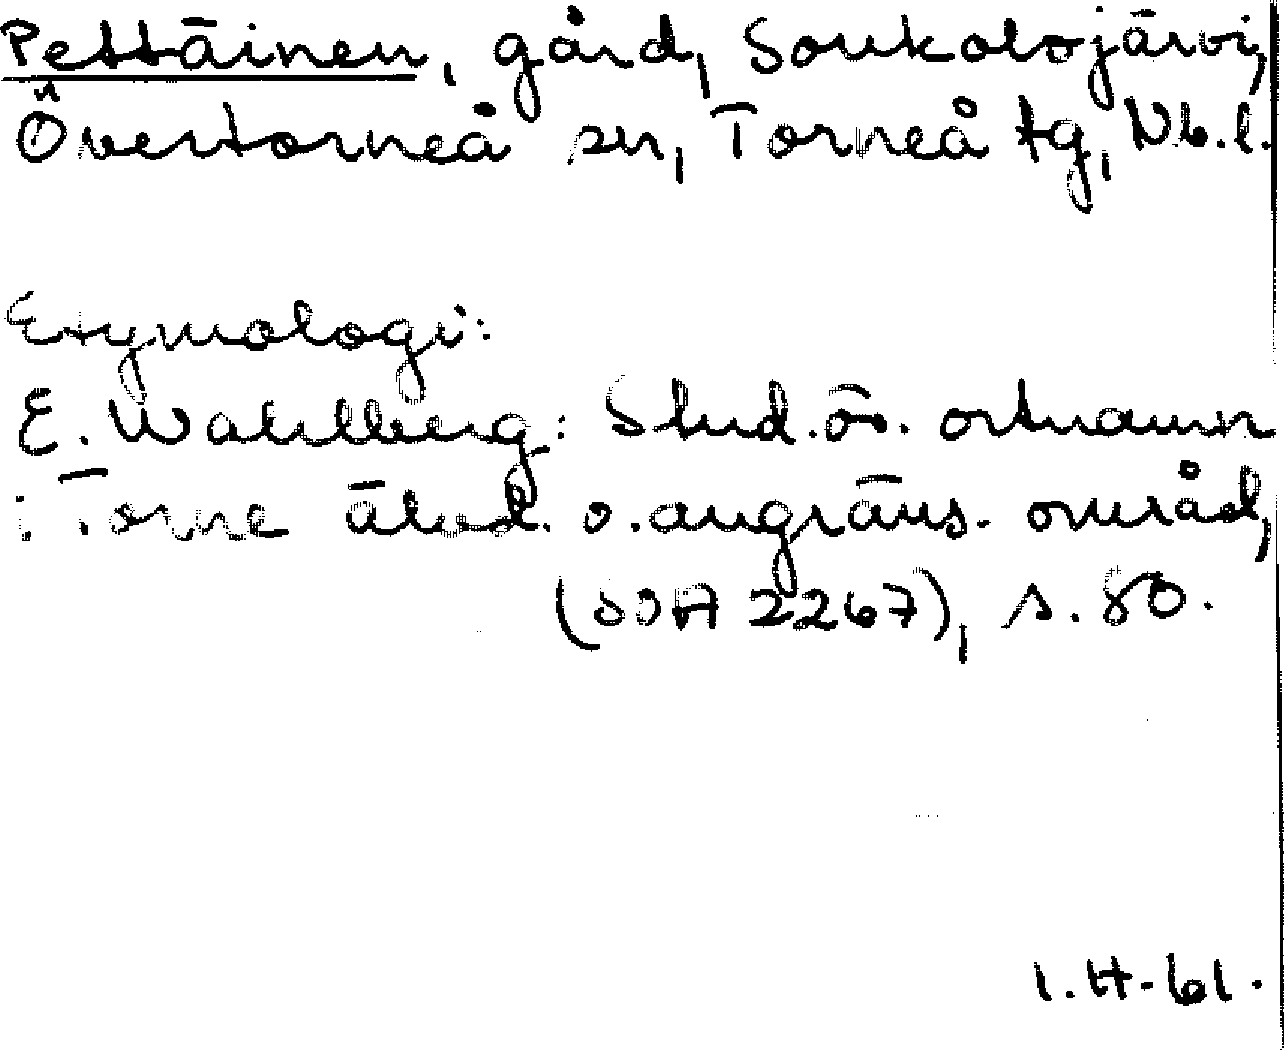 Pettäinen, gård, Soukolojärvi,
Övertorneå sn, Torneå tg, Nb.l.
Etymologi:
E. Wahlberg: Stud. ö. ortnamn
i Torne älvd. o. angräns. område,
(SOA 2267), s. 80.
I.H-61.